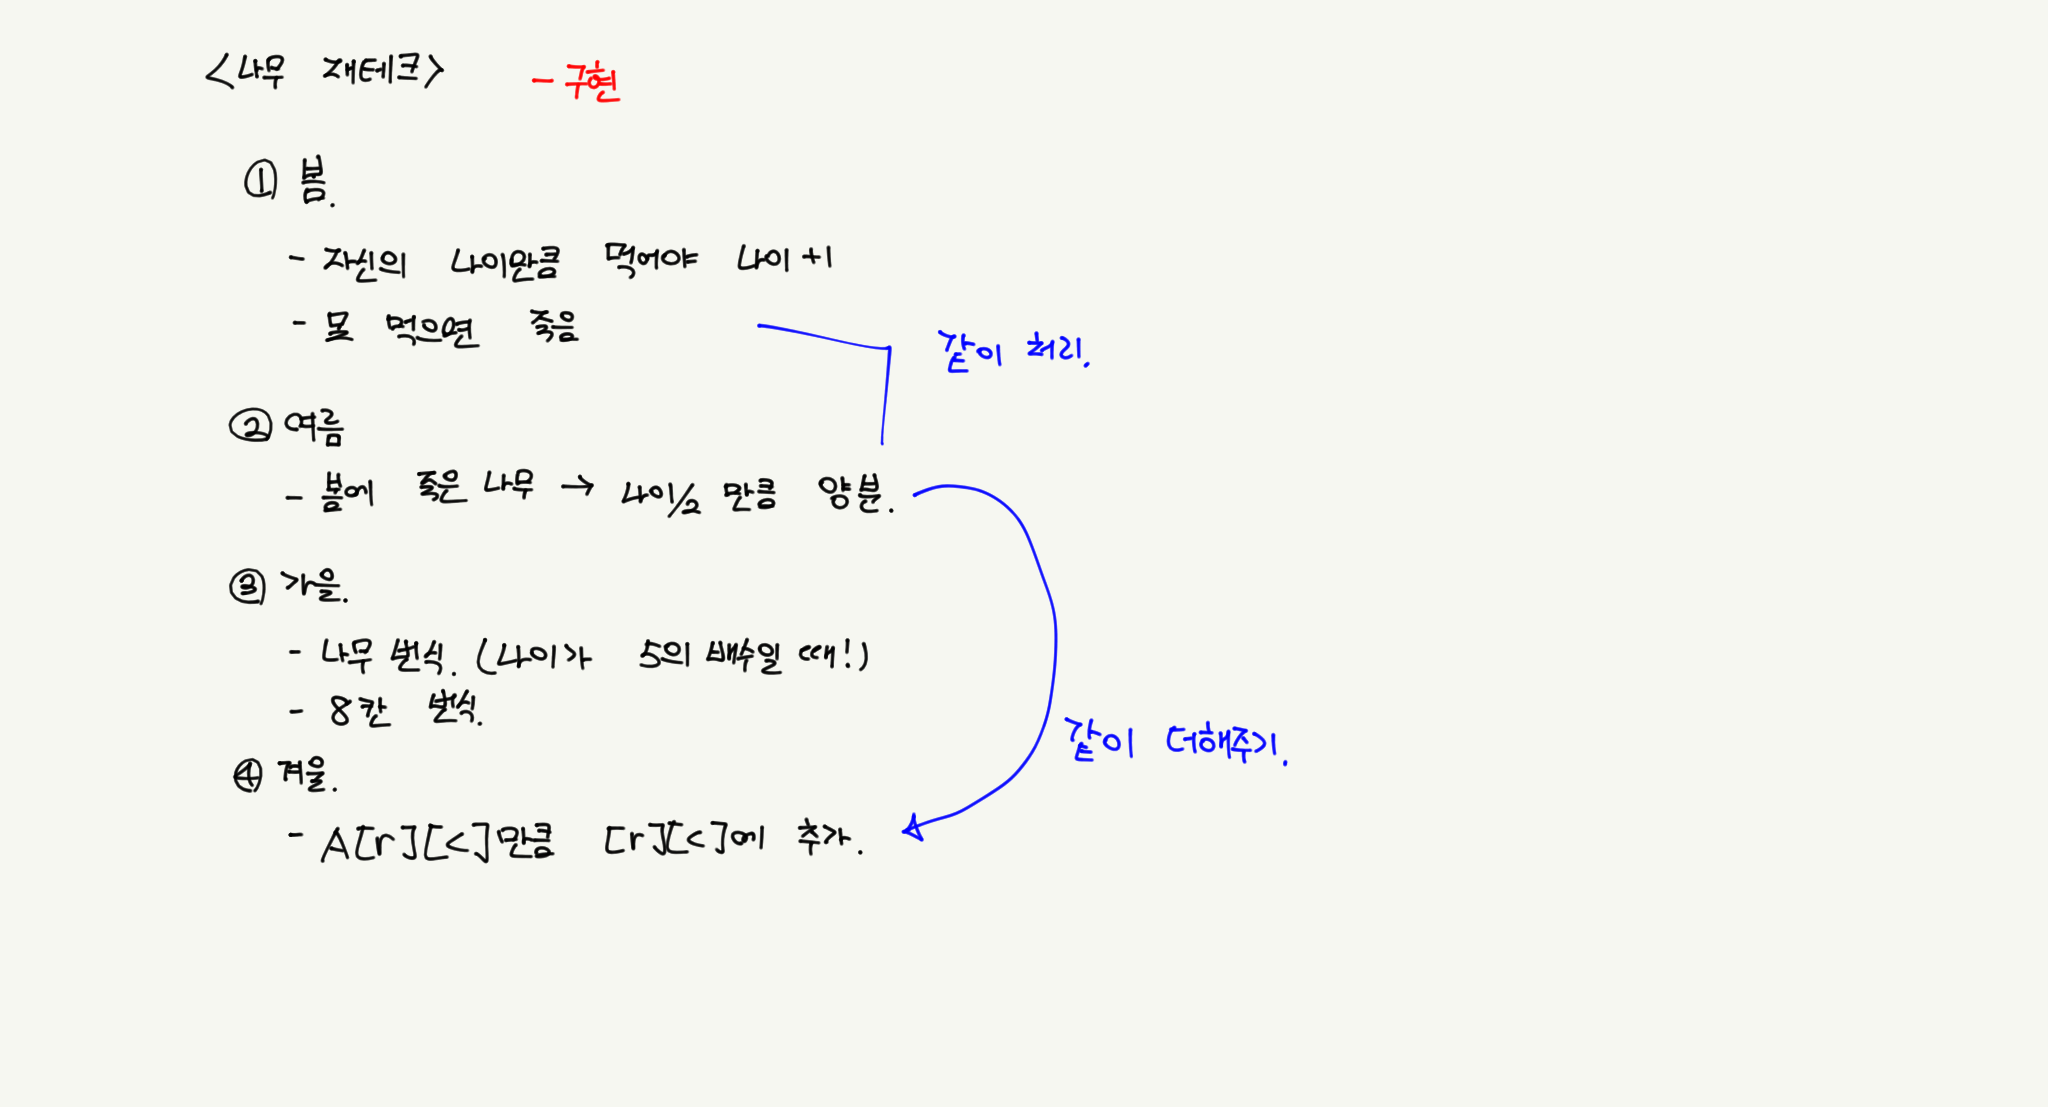 <나무 재테크> - 구현
① 봄.
- 자신의 나이만큼 먹어야 나이+1
- 못 먹으면 죽음
같이 처리.
② 여름
- 봄에 죽은 나무 → 나이/2 만큼 양분.
③ 가을.
- 나무 번식. (나이가 5의 배수일 때!)
- 8칸 번식.
같이 더해주기.
④ 겨울.
- A[r][c]만큼 [r][c]에 추가.